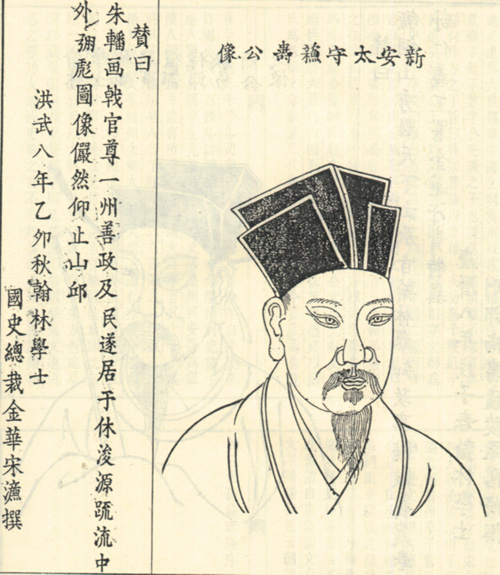 新安太守蘓壽公像
賛曰
朱轓画戟官尊一州善政及民遂居于休浚源䟽流中
外弸彪圖像儼然仰止山邱
洪武八年乙夘秋翰林學士
國史總裁金華宋濂撰